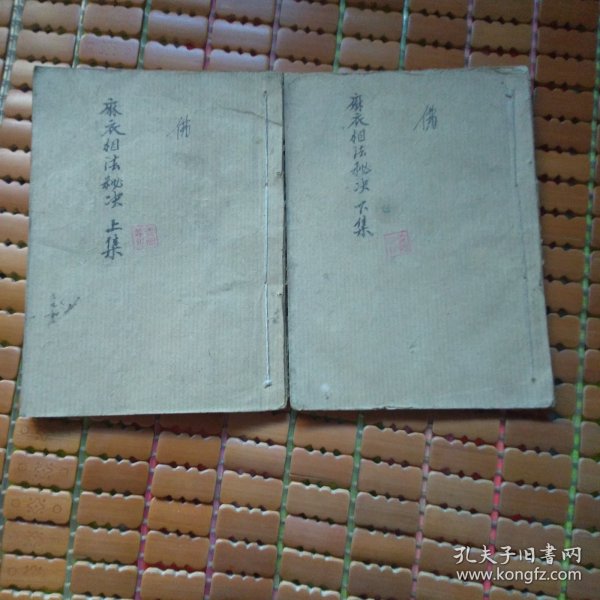 麻衣相法秘决 上集
佛
麻衣相法秘决 下集
佛
孔夫子旧书网
www.kongfz.com